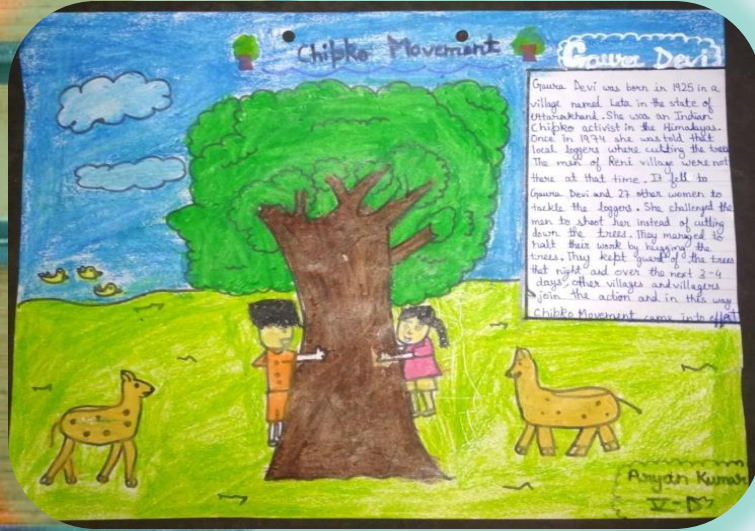 Chipko Movement
Gaura Devi
Gaura Devi was born in 1925 in a
village named Lata in the state of
Uttarakhand. She was an Indian
Chipko activist in the Himalayas.
Once in 1974 she was told that
local loggers where cutting the trees
The men of Reni village were not
there at that time. It fell to
Gaura Devi and 27 other women to
tackle the loggers. She challenged the
men to shoot her instead of cutting
down the trees. They managed to
halt their work by hugging the
trees. They kept guard of the trees
that night and over the next 3-4
days, other villages and villagers
join the action and in this way
Chipko Movement came into effect
Aryan Kumar